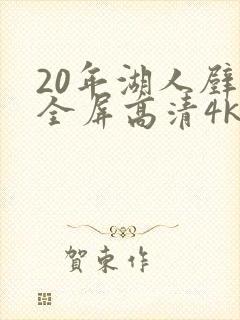 20年湖人壁
全屏高清4k
賀東作